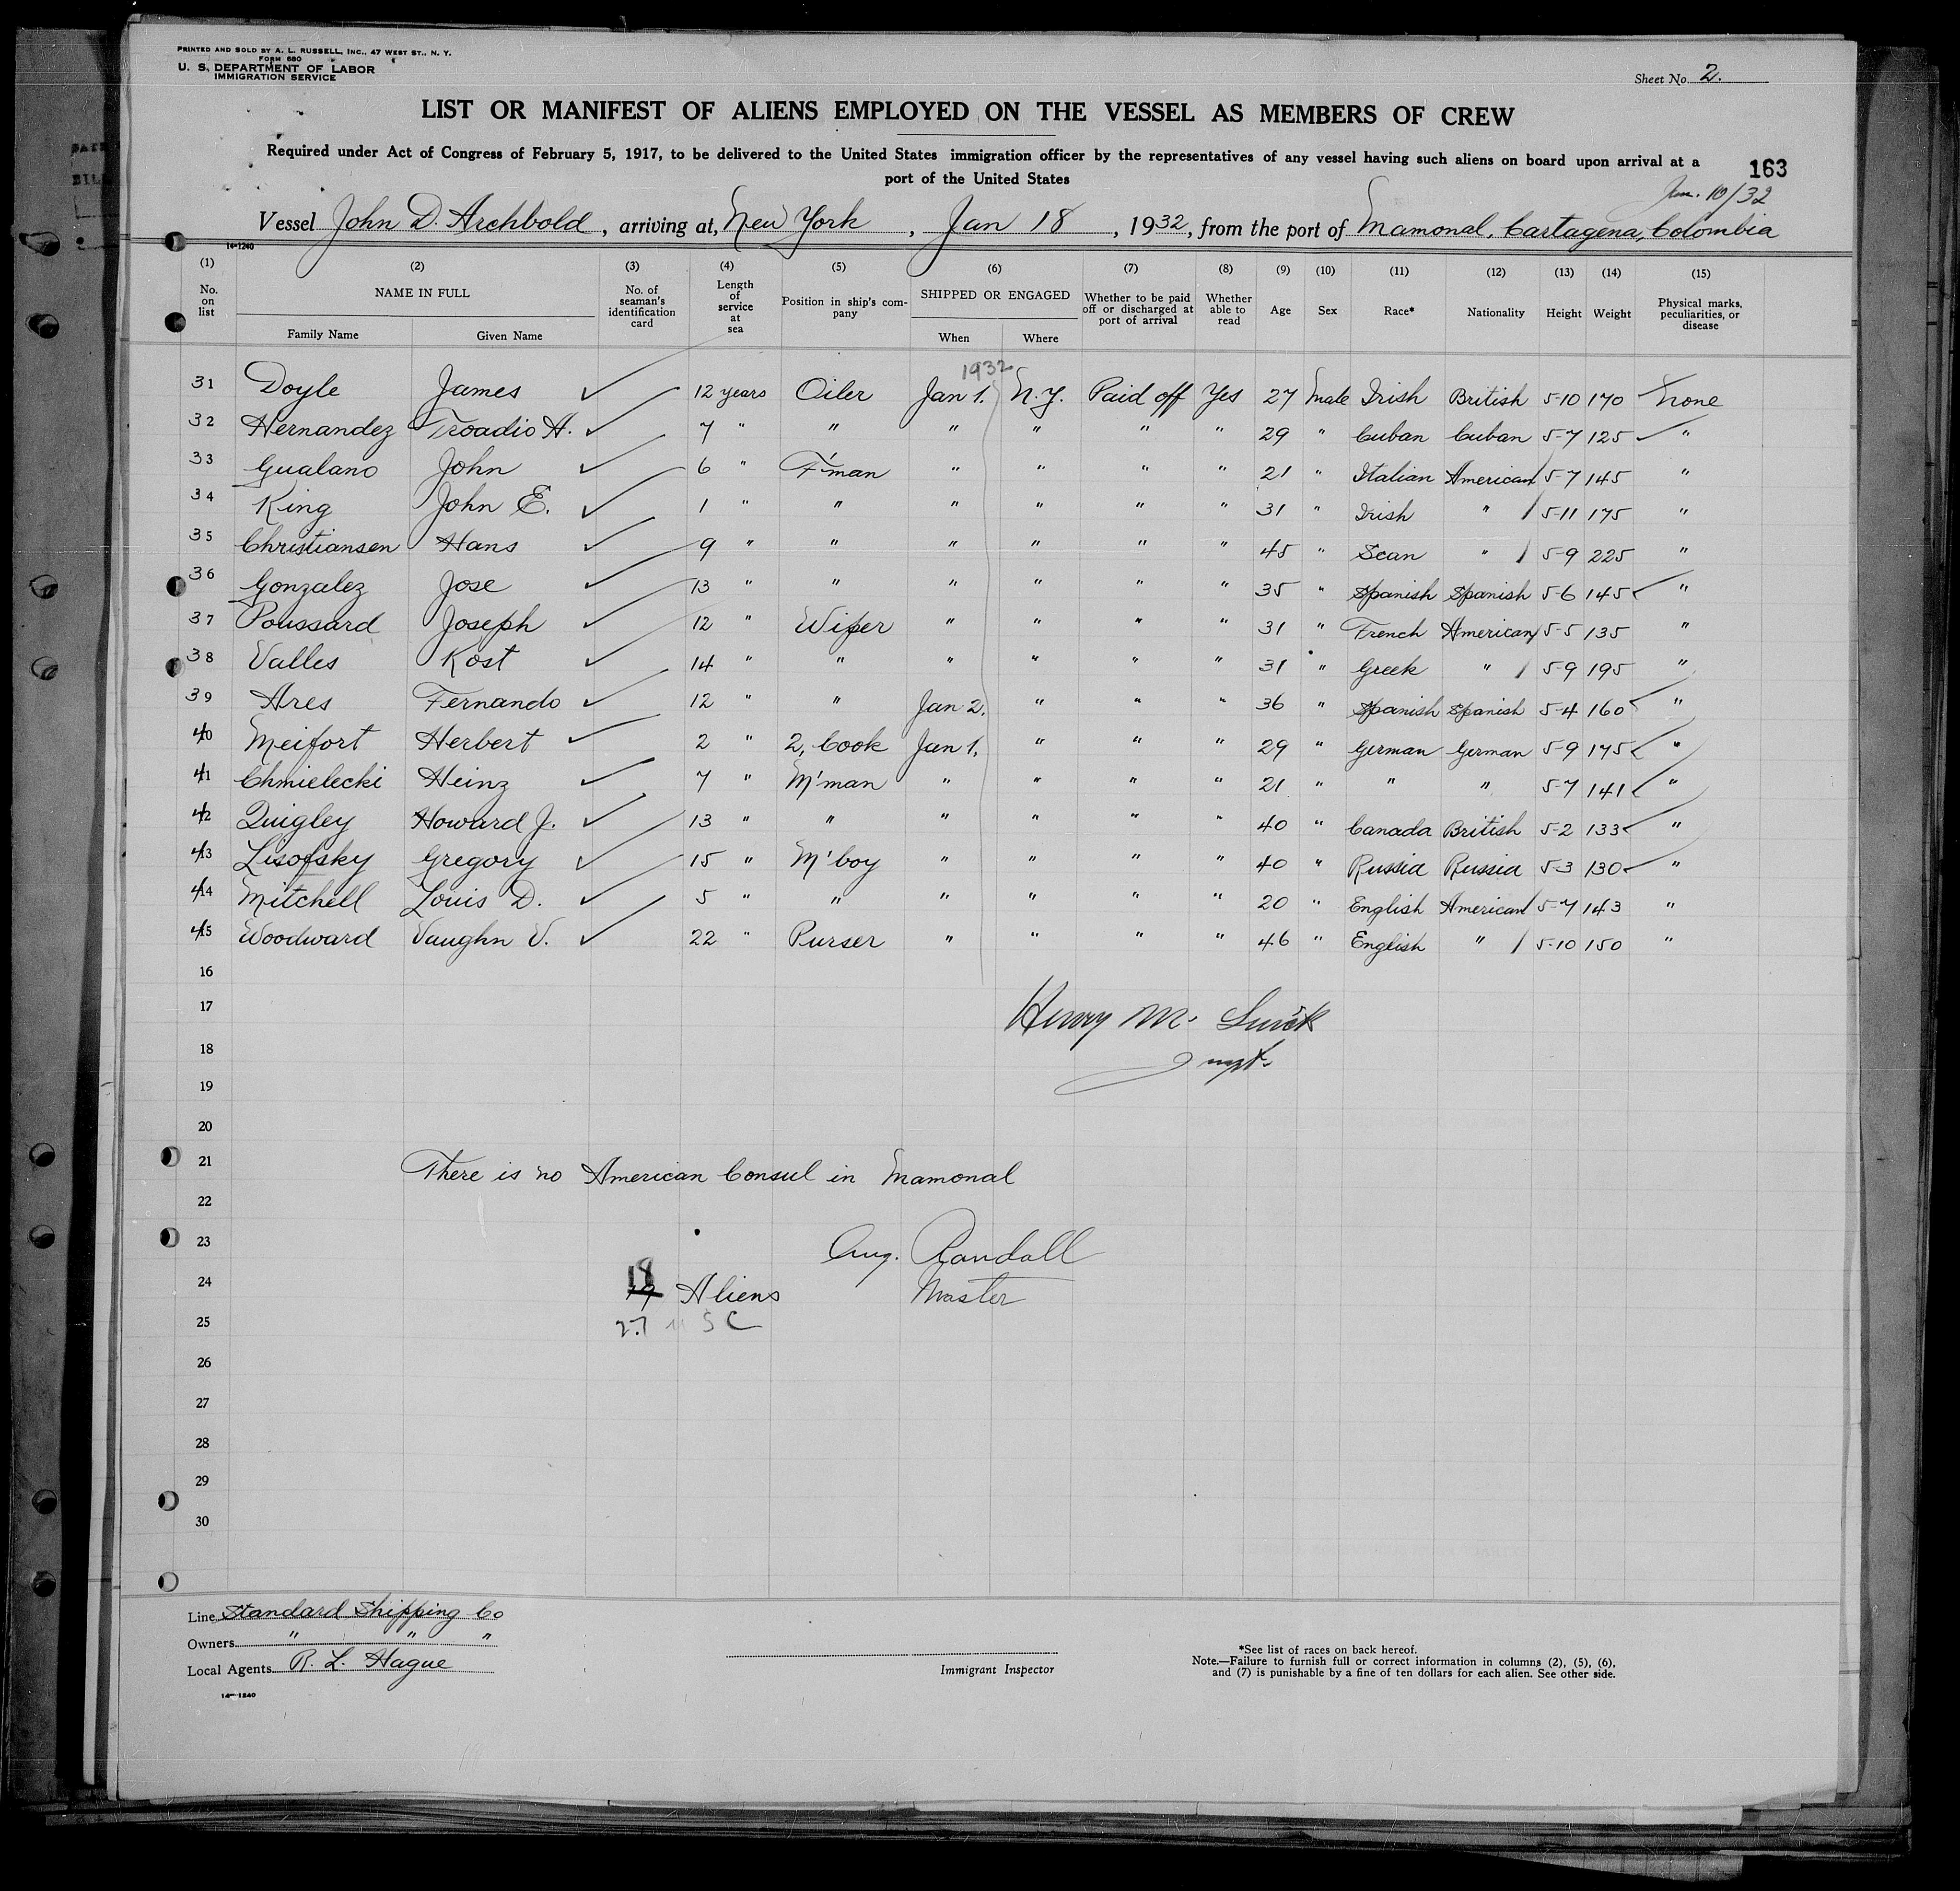 PRINTED AND SOLD BY A. L. RUSSELL, INC., 47 WEST ST., N. Y.
FORM 680
U. S. DEPARTMENT OF LABOR
IMMIGRATION SERVICE
Sheet No. 2.
LIST OR MANIFEST OF ALIENS EMPLOYED ON THE VESSEL AS MEMBERS OF CREW
Required under Act of Congress of February 5, 1917, to be delivered to the United States immigration officer by the representatives of any vessel having such aliens on board upon arrival at a
port of the United States
163
Jan. 10/32
Vessel John D. Archbold, arriving at, New York, Jan 18, 1932, from the port of Mamonal, Cartagena, Colombia
14-1240
(1) (2) (3) (4) (5) (6) (7) (8) (9) (10) (11) (12) (13) (14) (15)
No. on list NAME IN FULL Family Name Given Name No. of seaman's identification card Length of service at sea Position in ship's company SHIPPED OR ENGAGED When Where Whether to be paid off or discharged at port of arrival Whether able to read Age Sex Race* Nationality Height Weight Physical marks, peculiarities, or disease
1932
31 Doyle James ✓ 12 years Oiler Jan 1. N.Y. Paid off Yes 27 Male Irish British 5-10 170 None
32 Hernandez Troadio H. ✓ 7 " " " " " " 29 " Cuban Cuban 5-7 125 ✓ "
33 Gualano John ✓ 6 " F'man " " " " 21 " Italian American 5-7 145 "
34 King John E. ✓ 1 " " " " " " 31 " Irish " 5-11 175 "
35 Christiansen Hans ✓ 9 " " " " " " 45 " Scan " 5-9 225 "
36 Gonzalez Jose ✓ 13 " " " " " " 35 " Spanish Spanish 5-6 145 ✓ "
37 Poussard Joseph ✓ 12 " Wiper " " " " 31 " French American 5-5 135 "
38 Valles Kost ✓ 14 " " " " " " 31 " Greek " 5-9 195 "
39 Ares Fernando ✓ 12 " " Jan 2. " " " 36 " Spanish Spanish 5-4 160 ✓ "
40 Meifort Herbert ✓ 2 " 2. Cook Jan 1. " " " 29 " German German 5-9 175 ✓ "
41 Chmielecki Heinz ✓ 7 " M'man " " " " 21 " " " 5-7 141 ✓ "
42 Quigley Howard J. ✓ 13 " " " " " " 40 " Canada British 5-2 133 ✓ "
43 Lisofsky Gregory ✓ 15 " M'boy " " " " 40 " Russia Russia 5-3 130 ✓ "
44 Mitchell Louis D. ✓ 5 " " " " " " 20 " English American 5-7 143 "
45 Woodward Vaughn V. ✓ 22 " Purser " " " " 46 " English " 5-10 150 "
16
17 Henry M.
18
19
20
21 There is no American Consul in Mamonal
22
23 Aug. Randall
24 18 Aliens Master
25 27 USC
26
27
28
29
30
Line Standard Shipping Co
Owners " " "
Local Agents R. L. Hague
14-1240
Immigrant Inspector
*See list of races on back hereof.
Note.—Failure to furnish full or correct information in columns (2), (5), (6),
and (7) is punishable by a fine of ten dollars for each alien. See other side.